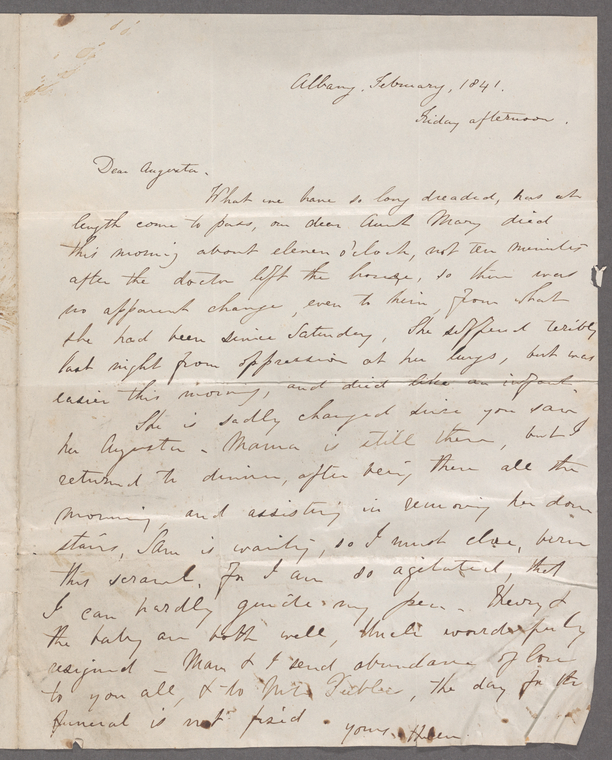 Albany, February, 1841.
Friday afternoon.
Dear Augusta.
What we have so long dreaded, has at
length come to pass, our dear Aunt Mary died
this morning about eleven o'clock, not ten minutes
after the doctor left the house, so there was
no apparent change, even to him, from what
she had been since Saturday. She suffered teribly
last night from oppression at her lungs, but was
easier this morning, and died like an infant.
She is sadly changed since you saw
her Augusta - Mama is still there, but I
returned to dinner, after being there all the
morning, and assisting in removing her down
stairs, Sam is waiting, so I must close,
this scrawl, for I am so agitated, that
I can hardly guide my pen - Henry &
the baby are both well, Uncle wonderfully
resigned - Mama & I send abundance of love
to you all, & to Mrs, the day for the
funeral is not fixed. yours. Helen.